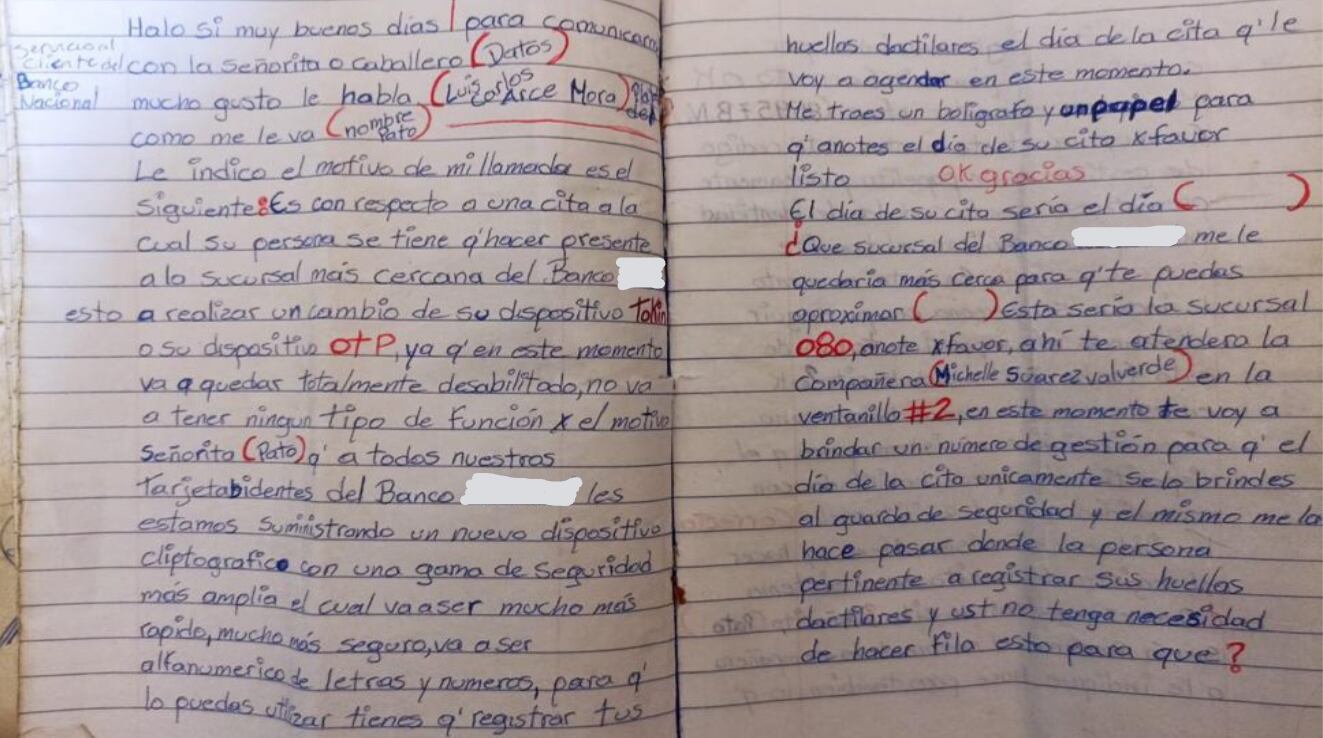 Halo si muy buenos días para comunicarm
con la señorita o caballero (Datos)
servicio al
cliente del
Banco
Nacional
mucho gusto le habla (Luis Carlos Arce Mora)
como me le va (nombre Pato)
Le indico el motivo de mi llamada es el
siguiente: Es con respecto a una cita a la
cual su persona se tiene q' hacer presente
a la sucursal más cercana del Banco
esto a realizar un cambio de su dispositivo Tokin
o su dispositivo OTP, ya q' en este momento
va a quedar totalmente desabilitado, no va
a tener ningun tipo de función x el motivo
Señorita (Pato) q' a todos nuestros
Tarjetabidentes del Banco les
estamos suministrando un nuevo dispositivo
cliptografico con una gama de seguridad
más amplia el cual va a ser mucho más
rapido, mucho más seguro, va a ser
alfanumerico de letras y numeros, para q'
lo puedas utlizar tienes q' registrar tus
huellas dactilares el día de la cita q' le
voy a agendar en este momento.
Me traes un boligrafo y un papel para
q' anotes el día de su cita x favor
listo OK gracias
El día de su cita sería el día ( )
¿Que sucursal del Banco me le
quedaria más cerca para q' te puedas
aproximar ( ) Esta sería la sucursal
080, anote x favor, ahí te atendera la
compañera (Michelle Suarez valverde) en la
ventanilla #2, en este momento te voy a
brindar un numero de gestión para q' el
día de la cita unicamente se lo brindes
al guarda de seguridad y el mismo me la
hace pasar donde la persona
pertinente a registrar sus huellas
dactilares y ust no tenga necesidad
de hacer fila esto para que?